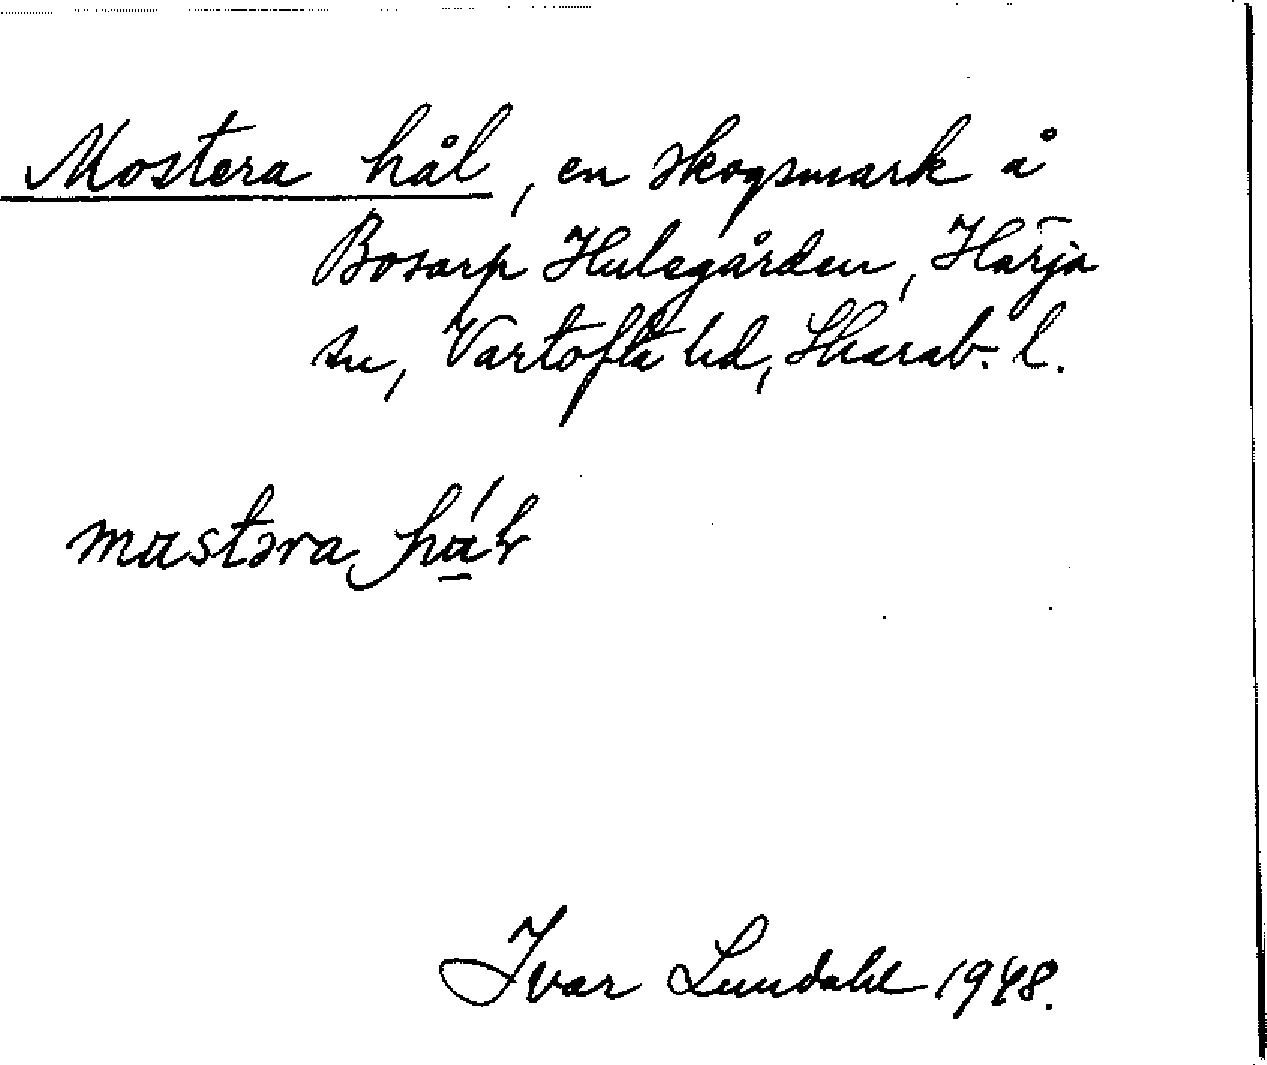 Mostera hål, en skogsmark å
Bosarp Hulegården, Härja
sn, Vartofta hd, Skarab. l.
mɑstəra hɑ́ꞎ
Ivar Lundahl 1948.